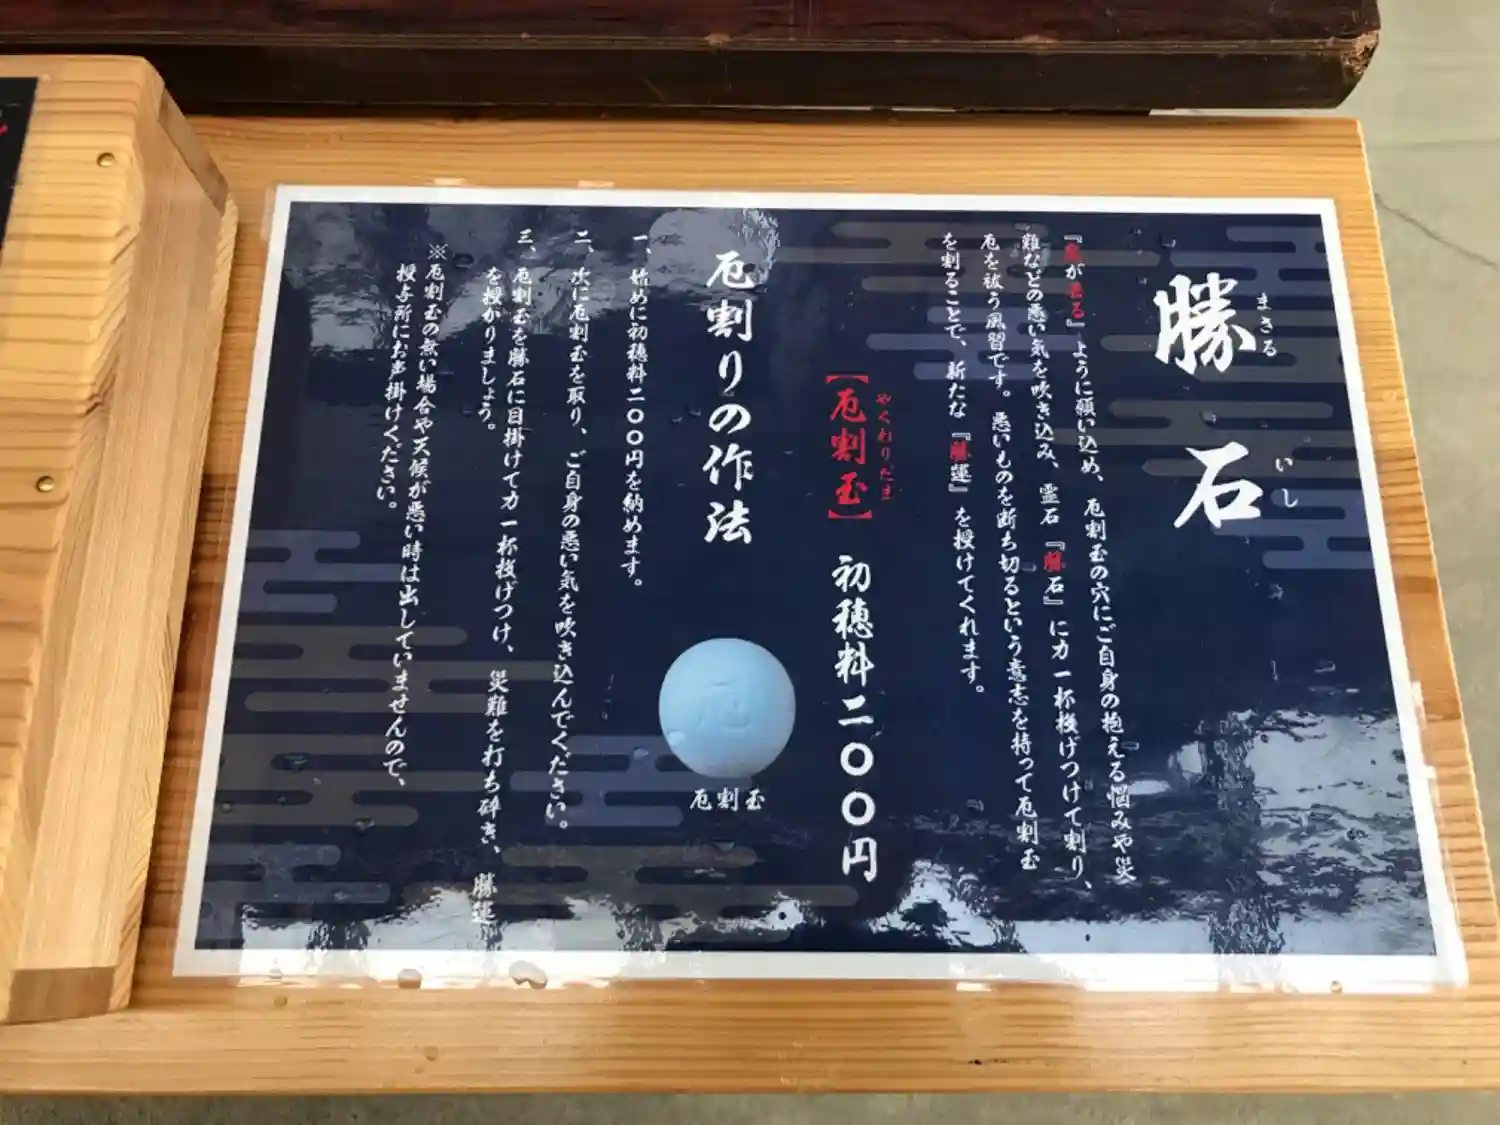 勝石
まさるいし
『魔が去る』ように願い込め、厄割玉の穴にご自身の抱える悩みや災
難などの悪い気を吹き込み、霊石『勝石』に力一杯投げつけて割り、
厄を祓う風習です。悪いものを断ち切るという意志を持って厄割玉
を割ることで、新たな『勝運』を授けてくれます。
【厄割玉】初穂料二〇〇円
やくわりだま
厄割りの作法
厄割玉
一、始めに初穂料二〇〇円を納めます。
二、次に厄割玉を取り、ご自身の悪い気を吹き込んでください。
三、厄割玉を勝石に目掛けて力一杯投げつけ、災難を打ち砕き、勝運
を授かりましょう。
※厄割玉の無い場合や天候が悪い時は出していませんので、
授与所にお声掛けください。